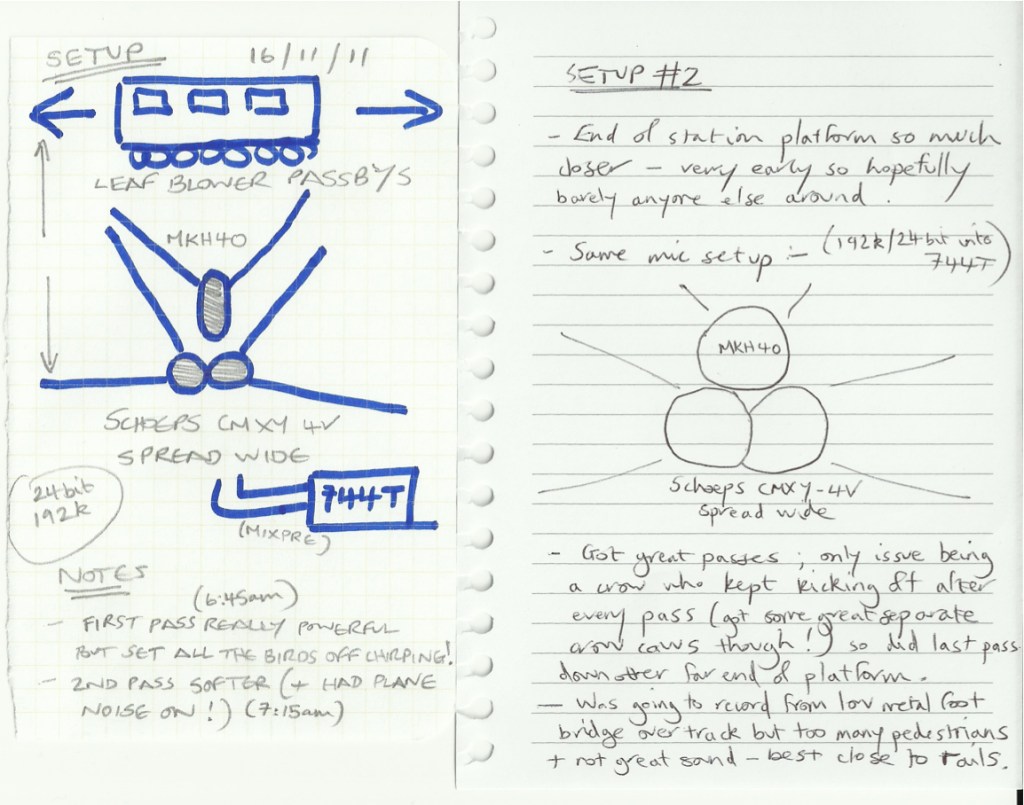 SETUP 16/11/11
LEAF BLOWER PASSBYS
MKH40
SCHOEPS CMXY 4V
SPREAD WIDE
24bit
192k
744T
(MIXPRE)
NOTES
(6:45am)
- FIRST PASS REALLY POWERFUL
BUT SET ALL THE BIRDS OFF CHIRPING!
- 2ND PASS SOFTER (+ HAD PLANE
NOISE ON!) (7:15am)
SETUP #2
- End of station platform so much
closer - very early so hopefully
barely anyone else around.
- Same mic setup :- (192k/24bit into
744T)
MKH40
Schoeps CMXY-4V
Spread wide
- Got great passes ; only issue being
a crow who kept kicking off after
every pass (got some great separate
crow caws though!) so did last pass
down other far end of platform.
- Was going to record from low metal foot
bridge over track but too many pedestrians
+ not great sand - best close to rails.